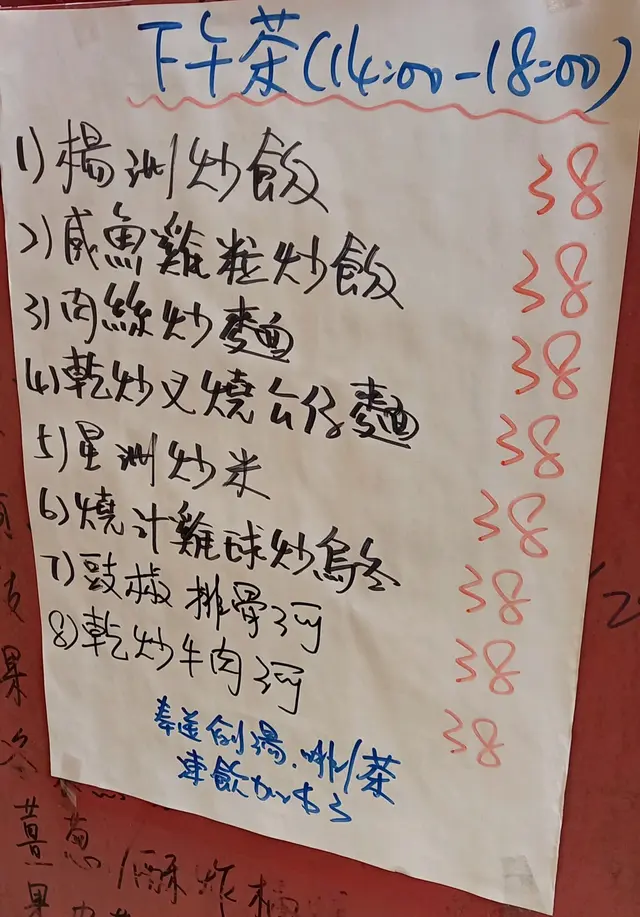 下午茶(14:00-18:00)
1) 楊洲炒飯 38
2) 咸魚雞粒炒飯 38
3) 肉絲炒麵 38
4) 乾炒叉燒公仔麵 38
5) 星洲炒米 38
6) 燒汁雞球炒烏冬 38
7) 豉椒排骨河 38
8) 乾炒牛肉河 38
奉送例湯.啡/茶
凍飲加$3
果
次
薑蔥/酥炸
果